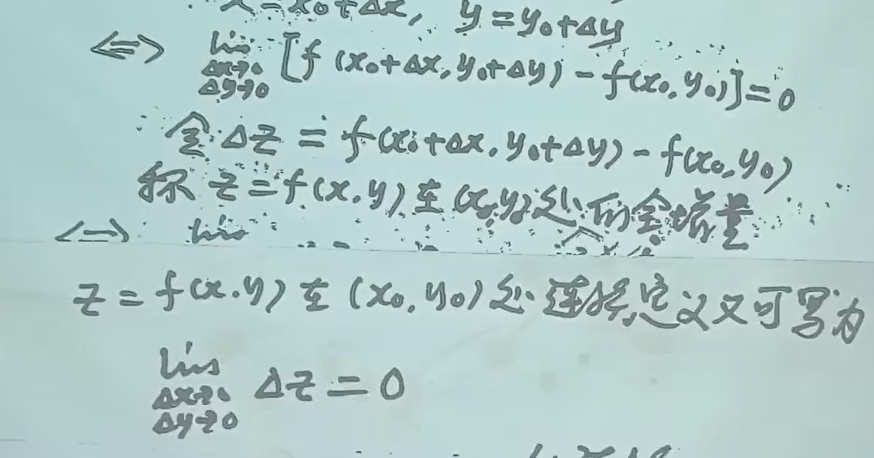 x=x₀+Δx, y=y₀+Δy
⟺ lim Δx→0 Δy→0 [f(x₀+Δx, y₀+Δy)-f(x₀, y₀)]=0
令 Δz = f(x₀+Δx, y₀+Δy)-f(x₀, y₀)
称 z=f(x.y)在(x₀,y₀)处的全增量
⟺ lim
z=f(x.y)在(x₀, y₀)处连续定义又可写为
lim Δx→0 Δy→0 Δz=0